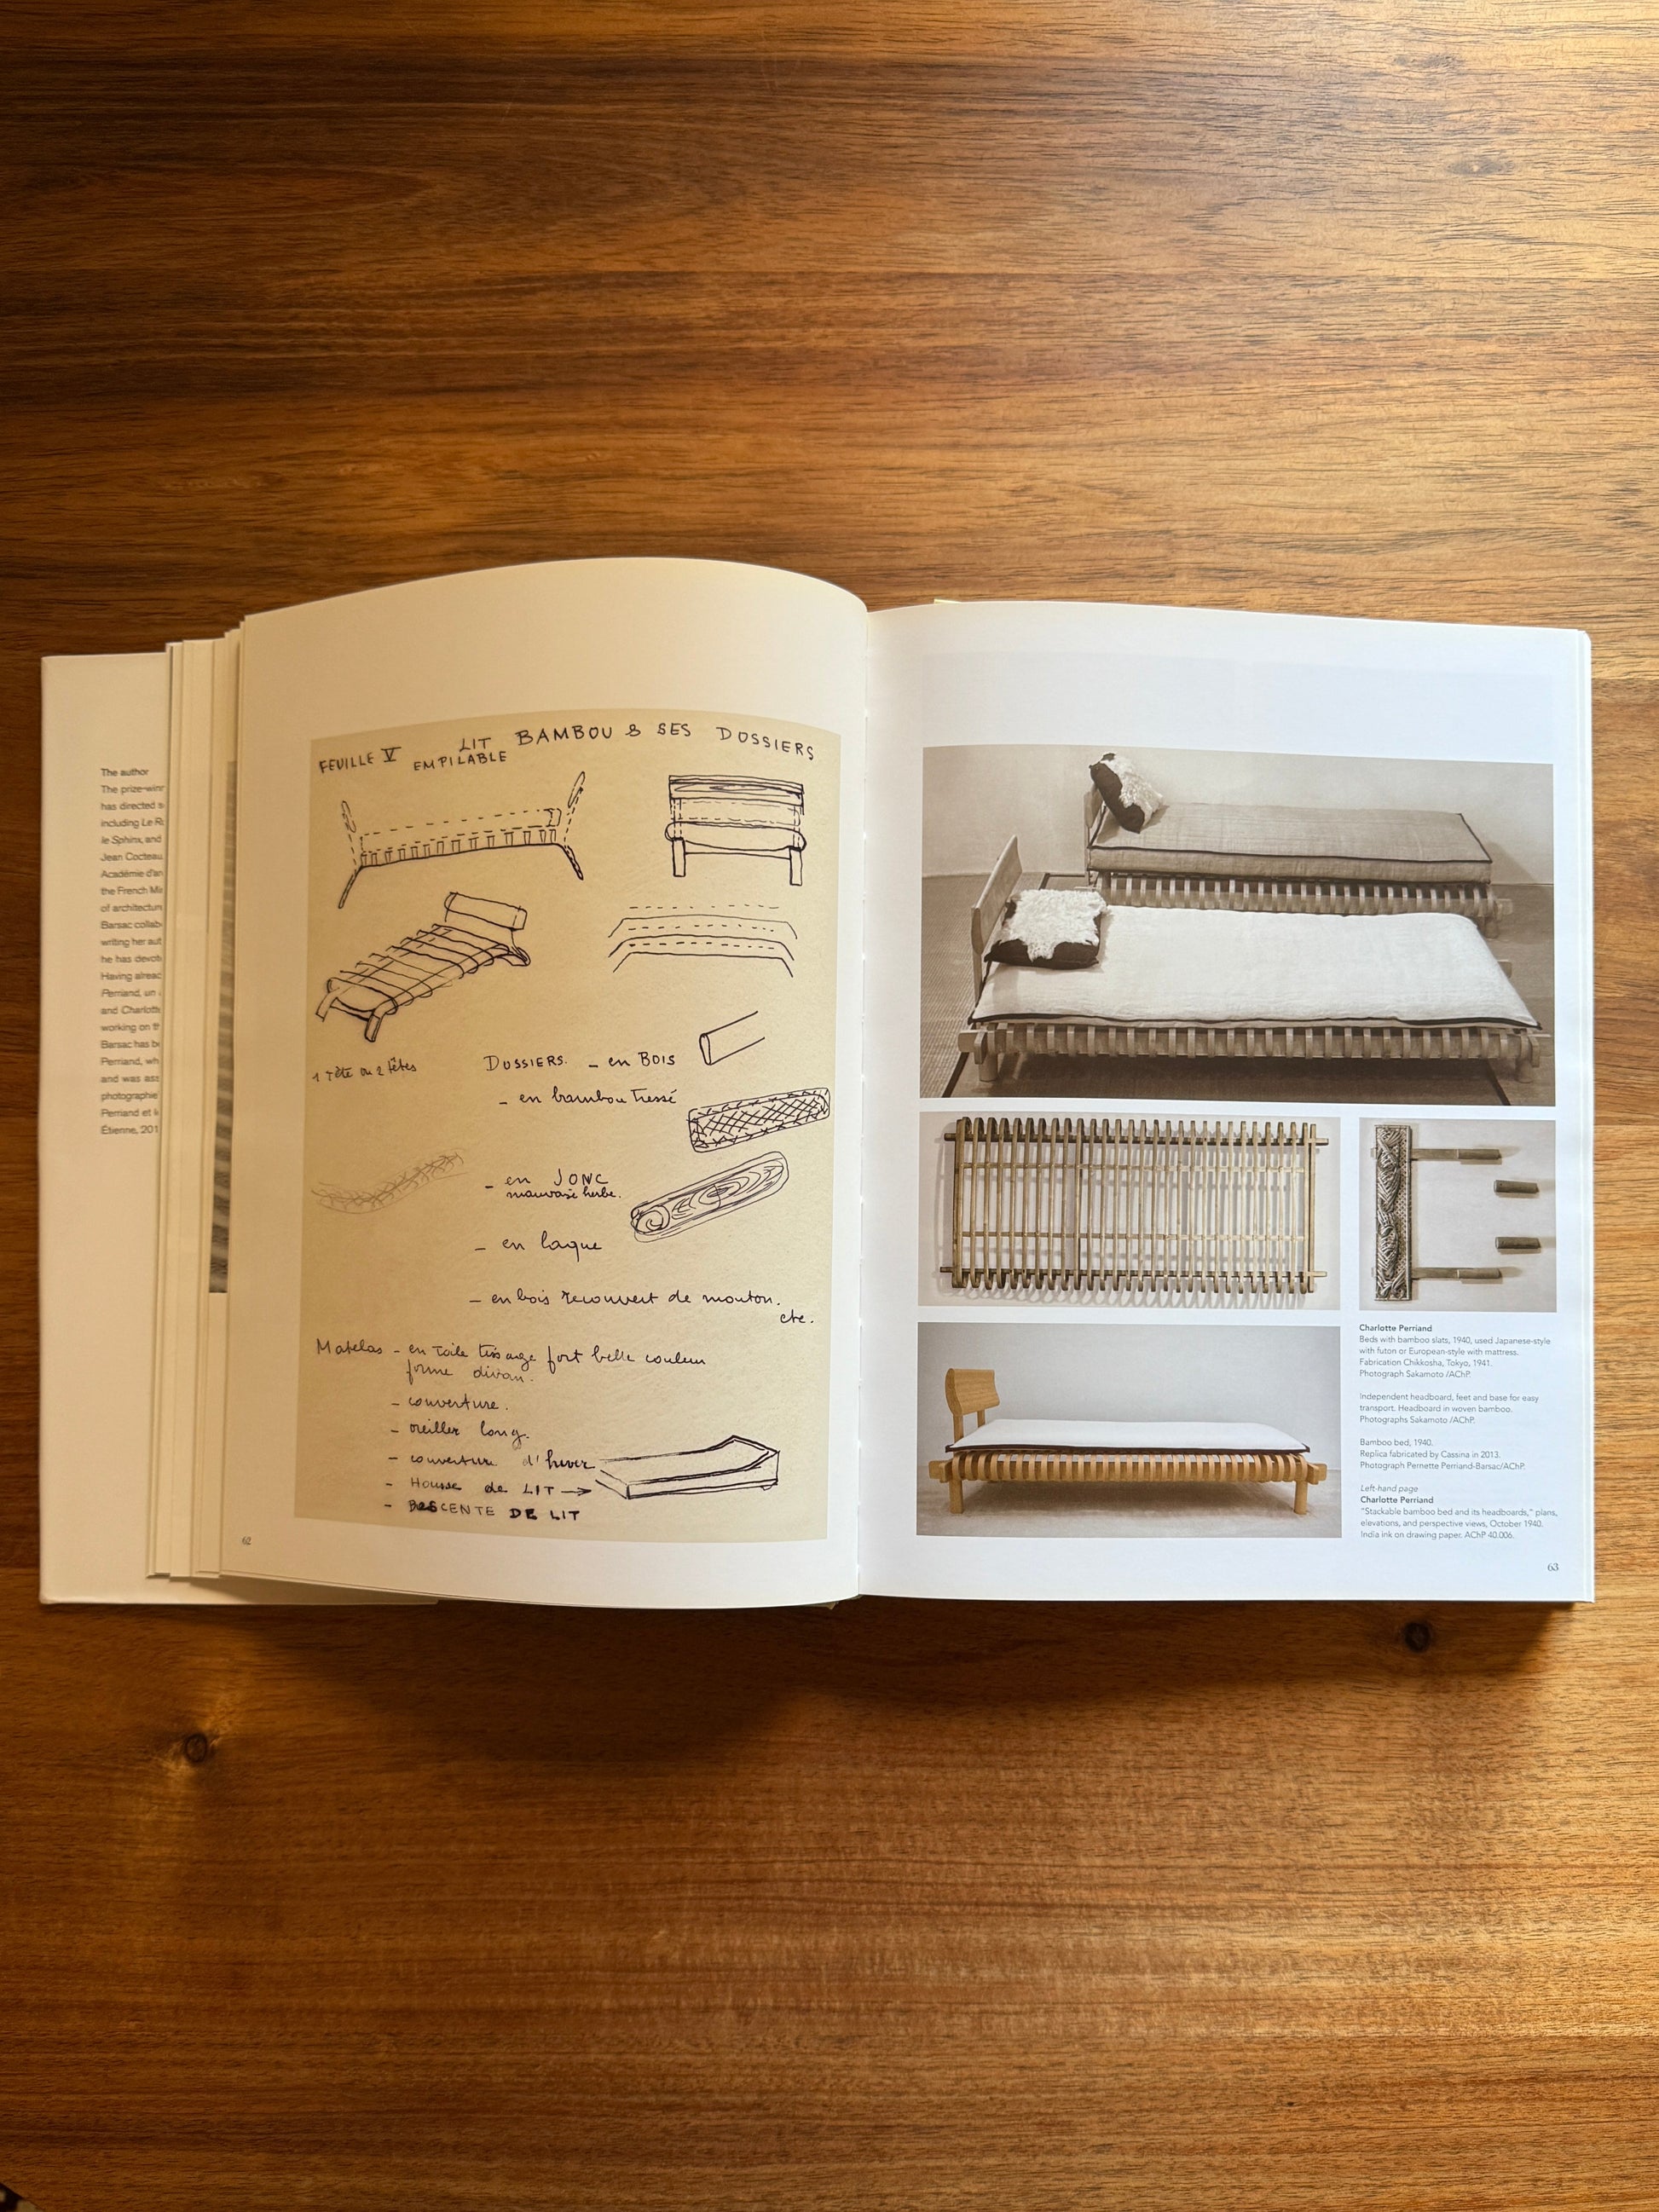 The author
The prize-winn
has directed s
including Le Ri
le Sphinx, and
Jean Cocteau
Académie d'ar
the French Mi
of architecture
Barsac collab
writing her aut
he has devote
Having alread
Perriand, un
and Charlotte
working on th
Barsac has be
Perriand, wh
and was ass
photographie
Perriand et l
Étienne, 201
FEUILLE V LIT BAMBOU & SES DOSSIERS
EMPILABLE
1 Tête ou 2 têtes
DOSSIERS. - en BOIS
- en bambou Tressé
- en JONC
mauvaise herbe.
- en laque
- en bois recouvert de mouton.
etc.
Matelas - en Toile tissage fort belle couleur
forme divan.
- couverture.
- oreiller long.
- couverture d'hiver
- HOUSSE de LIT →
- DESCENTE DE LIT
62
Charlotte Perriand
Beds with bamboo slats, 1940, used Japanese-style
with futon or European-style with mattress.
Fabrication Chikkosha, Tokyo, 1941.
Photograph Sakamoto /AChP.
Independent headboard, feet and base for easy
transport. Headboard in woven bamboo.
Photographs Sakamoto /AChP.
Bamboo bed, 1940.
Replica fabricated by Cassina in 2013.
Photograph Pernette Perriand-Barsac/AChP.
Left-hand page
Charlotte Perriand
"Stackable bamboo bed and its headboards," plans,
elevations, and perspective views, October 1940.
India ink on drawing paper. AChP 40.006.
63